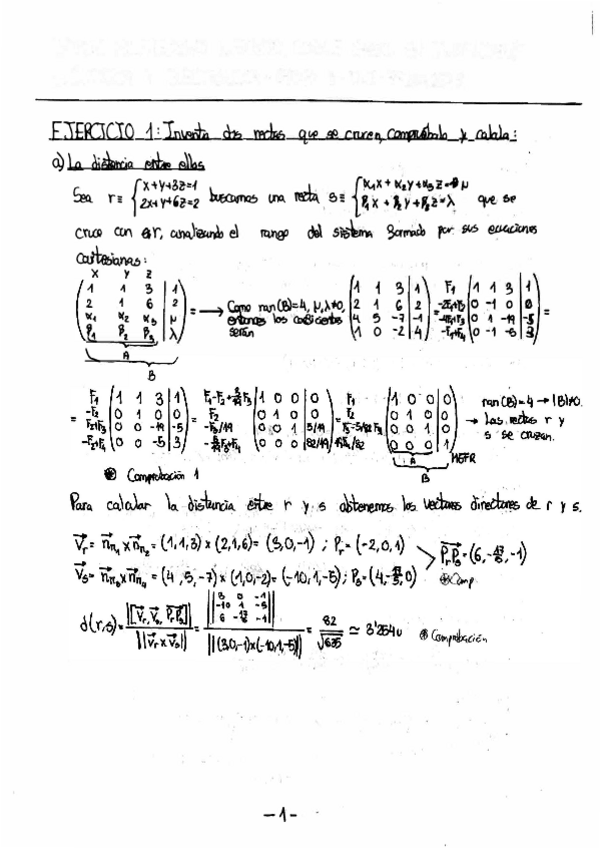 EJERCICIO 1: Inventa dos rectas que se crucen, compruébalo y calcula:
a) La distancia entre ellas
Sea r≡ {x+y+3z=1 2x+y+6z=2 buscamos una recta s≡ {α₁x+α₂y+α₃z=μ β₁x+β₂y+β₃z=λ que se
cruce con r, analizando el rango del sistema formado por sus ecuaciones
cartesianas:
x y z
(1 1 3 | 1
2 1 6 | 2
α₁ α₂ α₃ | μ
β₁ β₂ β₃ | λ) = → Como ran(B)=4, μ,λ≠0, entonces los coeficientes serán (1 1 3 | 1
2 1 6 | 2
4 5 -7 | -1
1 0 -2 | 4) = F₁ -2F₁+F₂ -4F₁+F₃ -F₁+F₄ (1 1 3 | 1
0 -1 0 | 0
0 1 -19 | -5
0 -1 -5 | 3) =
A
B
= F₁ -F₂ F₂+F₃ -F₂+F₄ (1 1 3 | 1
0 1 0 | 0
0 0 -19 | -5
0 0 -5 | 3) = (1 0 0 | 0
0 1 0 | 0
0 0 1 | 5/19
0 0 0 | 82/19) = (1 0 0 0
0 1 0 0
0 0 1 0
0 0 0 1) → ran(B)=4 → |B|≠0.
Las rectas r y
s se cruzan.
A
B
MEFR
⊛ Comprobación 1
Para calcular la distancia entre r y s obtenemos los vectores directores de r y s.
v⃗r = n⃗π₁ x n⃗π₂ = (1,1,3) x (2,1,6) = (3,0,-1) ; Pr = (-2,0,1)
v⃗s = n⃗π₃ x n⃗π₄ = (4,5,-7) x (1,0,-2) = (-10,1,-5) ; Ps = (4,-17/5,0)
PrPs = (6,-17/5,-1)
⊛ Comp
d(r,s) = |[v⃗r, v⃗s, PrPs]| / ||v⃗r x v⃗s|| = ||3 0 -1
-10 1 -5
6 -17/5 -1|| / ||(3,0,-1)x(-10,1,-5)|| = 82/√635 ≃ 3'2540 ⊛ Comprobación
-1-